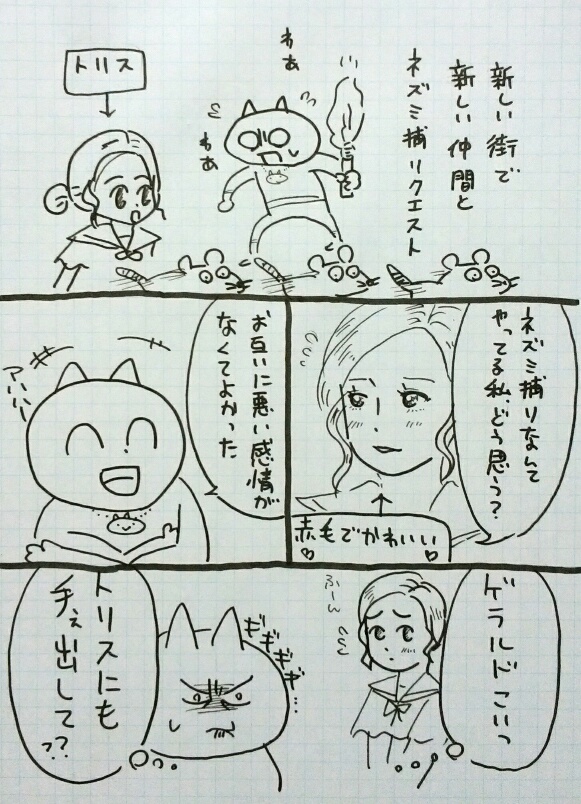 新しい街で
新しい仲間と
ネズミ捕りクエスト
わあ
わあ
トリス
ネズミ捕りなんて
やってる私、どう思う?
赤毛でかわいい
お互いに悪い感情が
なくてよかった
ゲラルドこいつ
ふーん
ギギギギ…
トリスにも
手ぇ出して??